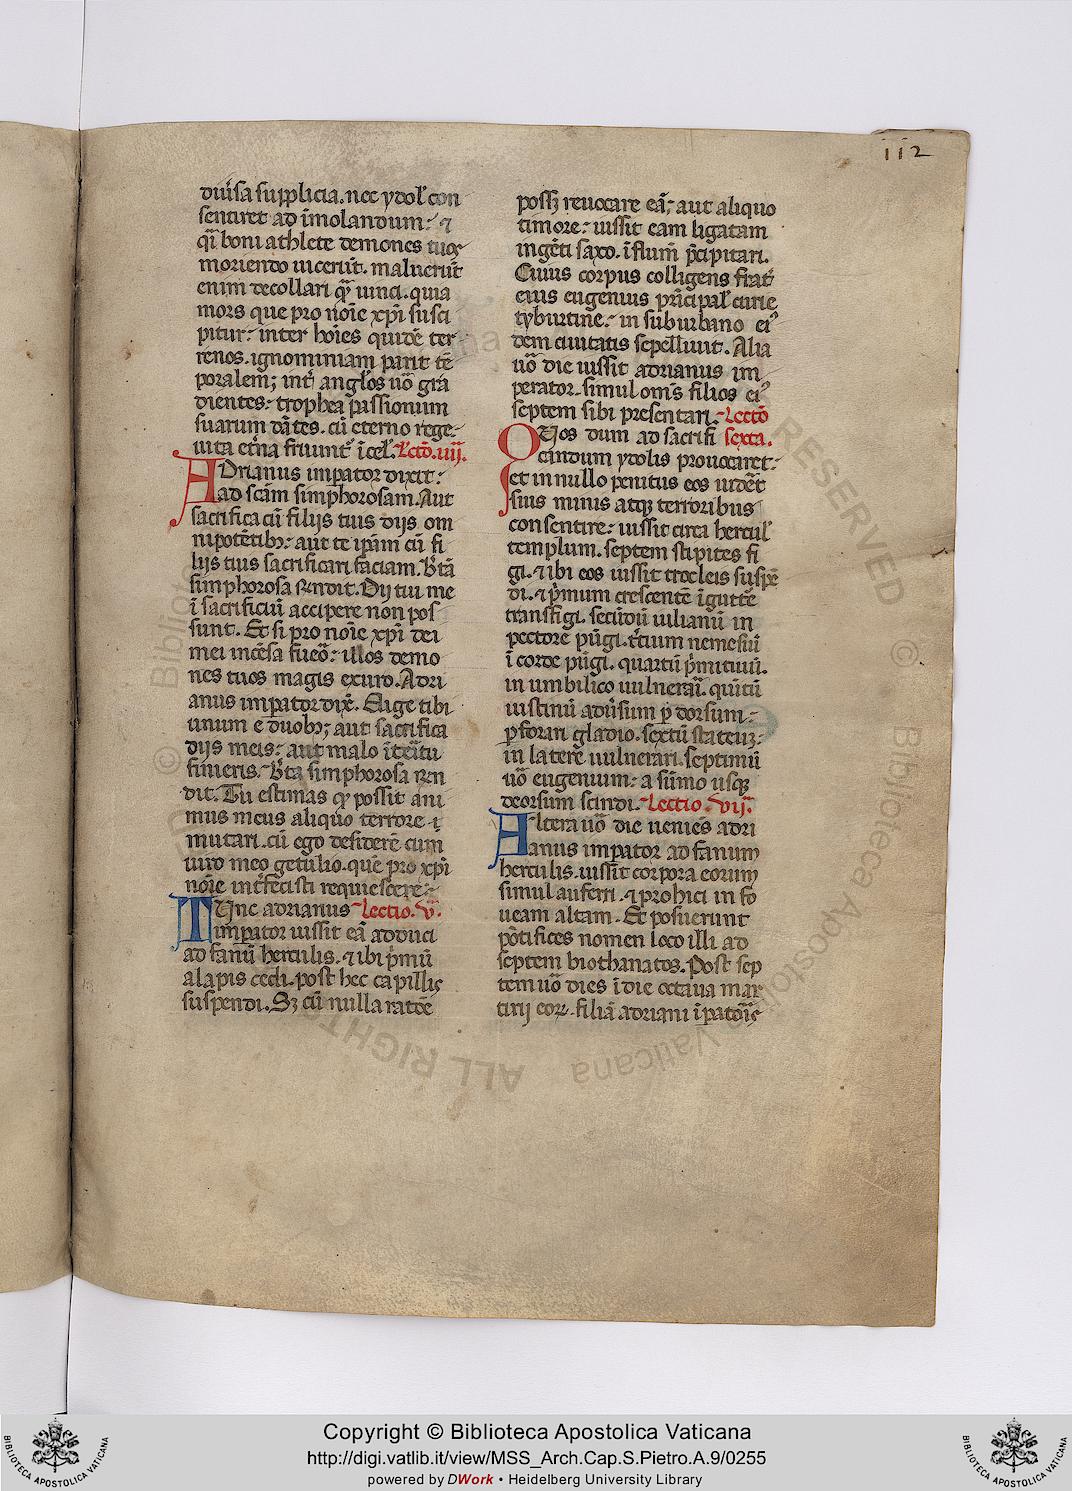 112
diu͛sa supplicia. nec ydol̛ con
sentiret ad īmolandum: ⁊
q̄ boni athlete demones tuos
moriendo uicerūt. maluerūt
enim decollari q̄ uinci. quia
mors que pro noīe xp̄i susci
pitur: inter hoīes quidē ter
renos. ignominiam parit tē
poralem; int͛ angl̓os uō gra
dientes: trophea passionum
suarum dātes. cū eterno rege:
uita et͛na friunt͛ ī cel̓. Lectō. iiij.
ADrianus imꝑator dixit:
ad scām simphorosam. Aut
sacrifica cū filijs tuis dijs om
nipotētibꝫ: aut te ip̄am cū fi
lijs tuis sacrificari faciam. B̄tā
simphorosa rn̄dit. Dij tui me
ī sacrificiū accipere non pos
sunt. Et si pro noīe xp̄i dei
mei incēsa fu͛eo: illos demo
nes tuos magis exuro. Adri
anus imꝑator dix̄. Elige tibi
unum e duobꝫ; aut sacrifica
dijs meis: aut malo īteītu
finieris. B̄ta simphorosa rn̄
dit. Tu estimas ꝙ possit ani
mus meus aliquo terrore ī
mutari. cū ego desiderē cum
uiro meo getulio. quē pro xp̄i
noīe int͛fecisti requiescere:
TUnc adrianus Lectio. v.
imperator iussit eā adduci
ad fanū herculis. ⁊ ibi p͛mū
alapis cedi. post hec capillis
suspendi. Sꝫ cū nulla ratōe
possꝫ reuocare eā; aut aliquo
timore: iussit eam ligatam
ingēti saxo. ī flum̄ p̄cipitari.
Cuius corpus colligens frat͛
eius eugenius p͛ncipal̓ curie
tyburtine: in suburbano eiꝰ
dem ciuitatis sepelliuit. Alia
uō die iussit adrianus im
perator. simul om̄s filios eiꝰ
septem sibi presentari. Lectō
QUos dum ad sacrifi sexta.
candum ydolis prouocaret:
et in nullo penitus eos uidēt
suis minis atqꝫ terroribus
consentire: iussit circa hercul̓
templum. septem stipites fi
gi. ⁊ ibi eos iussit trocleis suspē
di. ⁊ p͛mum crescentē ī guttē
transfigi. secūdū iulianū in
pectore pūgi. t͛cium nemesiū
ī corde pūgi. quartū p͛mitiuū.
in umbilico uulnerai. quītū
iustinū adu͛sum ꝑ dorsum:
ꝑforari gladio. sextū stateuꝫ:
in latere uulnerari. septimū
uō eugenium: a sūmo usqꝫ
deorsum scindi. Lectio. vij.
ALtera uō die ueniēs adri
anus imꝑator ad fanum
herculis. iussit corpora eorum
simul auferri. ⁊ prohici in fo
ueam altam. Et posuerunt
pōtifices nomen loco illi ad
septem biothanatos. Post sep
tem uō dies ī die octaua mar
tirij eoꝝ. filiā adriani īꝑatoris
Copyright © Biblioteca Apostolica Vaticana
http://digi.vatlib.it/view/MSS_Arch.Cap.S.Pietro.A.9/0255
powered by DWork • Heidelberg University Library
BIBLIOTECA APOSTOLICA VATICANA
BIBLIOTECA APOSTOLICA VATICANA